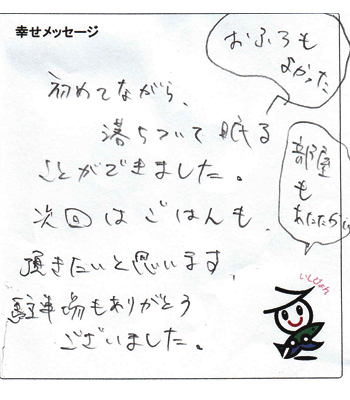 幸せメッセージ
おふろも
よかった
初めてながら、
落ちついて眠る
ことができました。
部屋
も
あたたかい
次回はごはんも
頂きたいと思います
駐車場もありがとう
ございました。